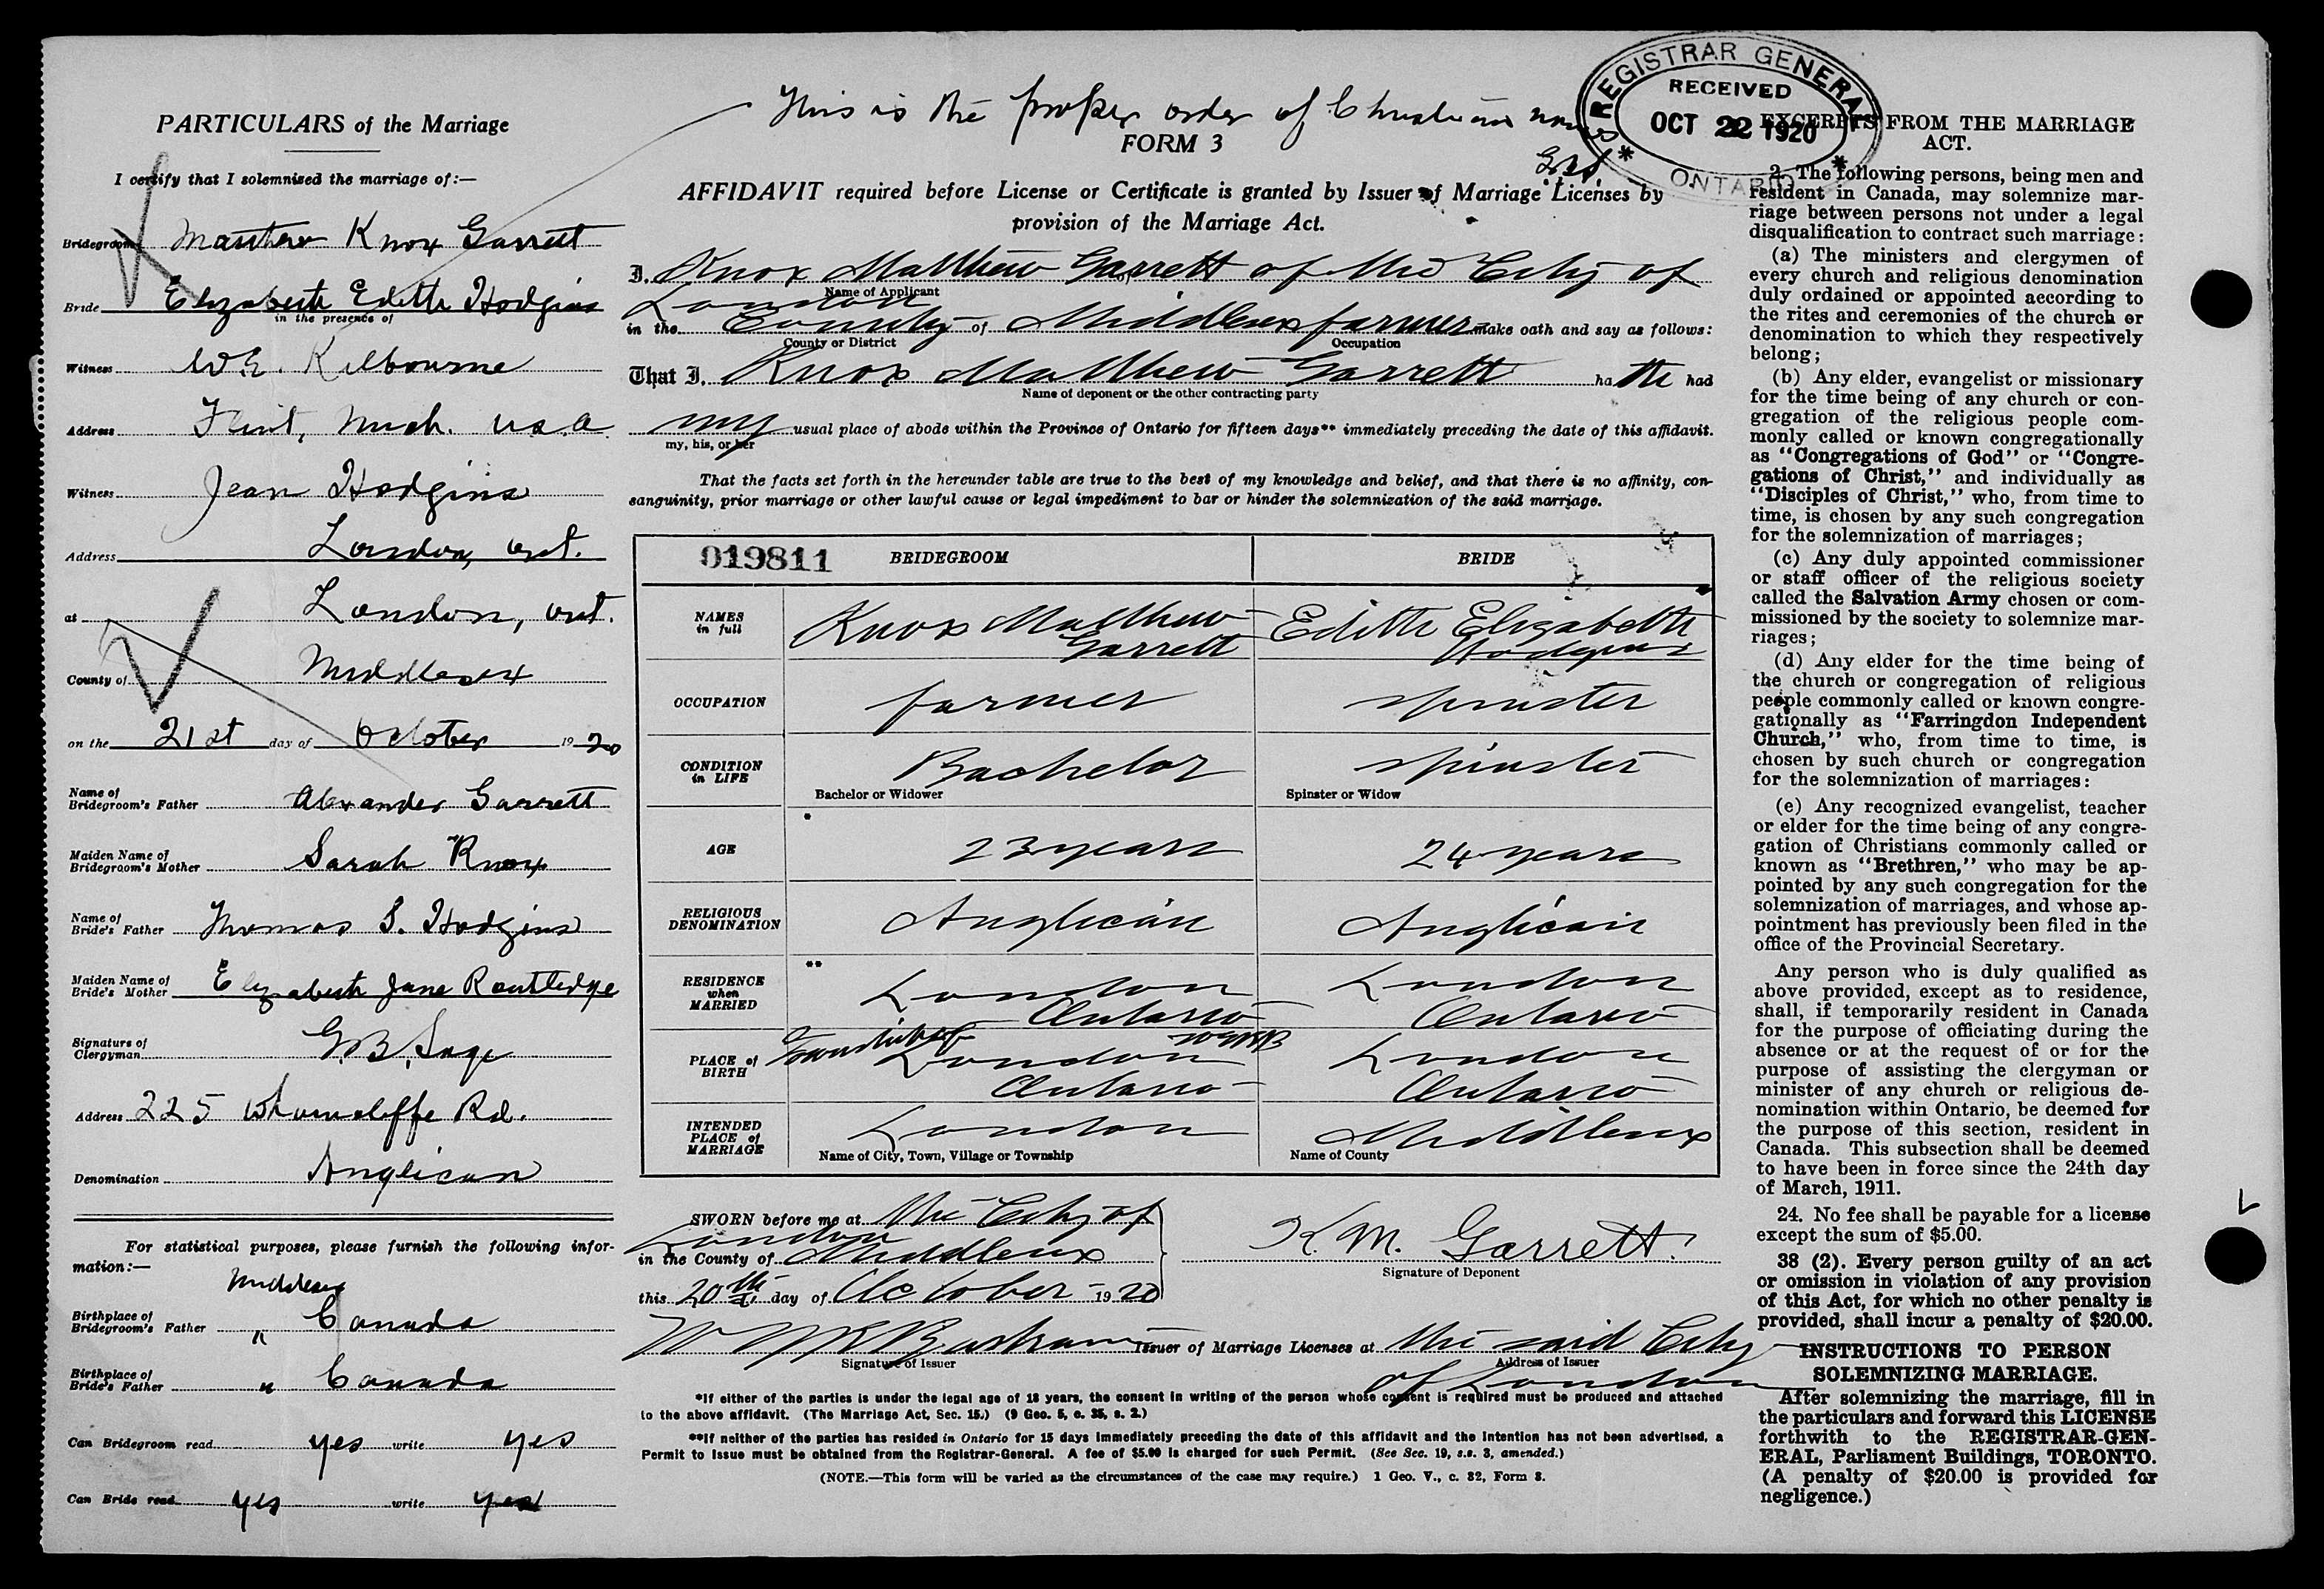 PARTICULARS of the Marriage
I certify that I solemnized the marriage of:—
Bridegroom Matthew Knox Garrett
Bride Elizabeth Edith Hodgins
in the presence of
Witness W.E. Kilbourne
Address Flint, Mich. U.S.A.
Witness Jean Hodgins
Address London, Ont.
at London, Ont.
County of Middlesex
on the 21st day of October 1920
Name of Bridegroom's Father Alexander Garrett
Maiden Name of Bridegroom's Mother Sarah Knox
Name of Bride's Father Thomas S. Hodgins
Maiden Name of Bride's Mother Elizabeth Jane Routledge
Signature of Clergyman G.B. Sage
Address 225 Wharncliffe Rd.
Denomination Anglican
For statistical purposes, please furnish the following infor-
mation:—
Middlesex
Birthplace of Bridegroom's Father " Canada
Birthplace of Bride's Father " Canada
Can Bridegroom read yes write yes
Can Bride read yes write yes
This is the proper order of Christian names
G.B.S.
FORM 3
AFFIDAVIT required before License or Certificate is granted by Issuer of Marriage Licenses by
provision of the Marriage Act.
I, Knox Matthew Garrett of the City of
Name of Applicant
London
in the County of Middlesex farmer make oath and say as follows:
County or District Occupation
That I, Knox Matthew Garrett ha the had
Name of deponent or the other contracting party
my usual place of abode within the Province of Ontario for fifteen days** immediately preceding the date of this affidavit.
my, his, or her
That the facts set forth in the hereunder table are true to the best of my knowledge and belief, and that there is no affinity, con-
sanguinity, prior marriage or other lawful cause or legal impediment to bar or hinder the solemnization of the said marriage.
019811 BRIDEGROOM BRIDE
NAMES in full Knox Matthew Garrett Edith Elizabeth Hodgins
OCCUPATION farmer spinster
CONDITION in LIFE Bachelor spinster
Bachelor or Widower Spinster or Widow
*
AGE 23 years 24 years
RELIGIOUS DENOMINATION Anglican Anglican
**
RESIDENCE when MARRIED London Ontario London Ontario
PLACE of BIRTH Township of London Ontario London Ontario
INTENDED PLACE of MARRIAGE London Middlesex
Name of City, Town, Village or Township Name of County
SWORN before me at the City of
London
in the County of Middlesex
this 20th day of October 1920
K. M. Garrett.
Signature of Deponent
Issuer of Marriage Licenses at the said City
Signature of Issuer Address of Issuer
of London
*If either of the parties is under the legal age of 18 years, the consent in writing of the person whose consent is required must be produced and attached
to the above affidavit. (The Marriage Act, Sec. 15.) (9 Geo. 5, c. 35, s. 2.)
**If neither of the parties has resided in Ontario for 15 days immediately preceding the date of this affidavit and the intention has not been advertised, a
Permit to issue must be obtained from the Registrar-General. A fee of $5.00 is charged for such Permit. (See Sec. 19, s.s. 3, amended.)
(NOTE.—This form will be varied as the circumstances of the case may require.) 1 Geo. V., c. 32, Form 3.
REGISTRAR GENERAL
RECEIVED
OCT 22 1920
ONTARIO
EXCERPTS FROM THE MARRIAGE
ACT.
2. The following persons, being men and
resident in Canada, may solemnize mar-
riage between persons not under a legal
disqualification to contract such marriage:
(a) The ministers and clergymen of
every church and religious denomination
duly ordained or appointed according to
the rites and ceremonies of the church or
denomination to which they respectively
belong;
(b) Any elder, evangelist or missionary
for the time being of any church or con-
gregation of the religious people com-
monly called or known congregationally
as "Congregations of God" or "Congre-
gations of Christ," and individually as
"Disciples of Christ," who, from time to
time, is chosen by any such congregation
for the solemnization of marriages;
(c) Any duly appointed commissioner
or staff officer of the religious society
called the Salvation Army chosen or com-
missioned by the society to solemnize mar-
riages;
(d) Any elder for the time being of
the church or congregation of religious
people commonly called or known congre-
gationally as "Farringdon Independent
Church," who, from time to time, is
chosen by such church or congregation
for the solemnization of marriages:
(e) Any recognized evangelist, teacher
or elder for the time being of any congre-
gation of Christians commonly called or
known as "Brethren," who may be ap-
pointed by any such congregation for the
solemnization of marriages, and whose ap-
pointment has previously been filed in the
office of the Provincial Secretary.
Any person who is duly qualified as
above provided, except as to residence,
shall, if temporarily resident in Canada
for the purpose of officiating during the
absence or at the request of or for the
purpose of assisting the clergyman or
minister of any church or religious de-
nomination within Ontario, be deemed for
the purpose of this section, resident in
Canada. This subsection shall be deemed
to have been in force since the 24th day
of March, 1911.
24. No fee shall be payable for a license
except the sum of $5.00.
38 (2). Every person guilty of an act
or omission in violation of any provision
of this Act, for which no other penalty is
provided, shall incur a penalty of $20.00.
INSTRUCTIONS TO PERSON
SOLEMNIZING MARRIAGE.
After solemnizing the marriage, fill in
the particulars and forward this LICENSE
forthwith to the REGISTRAR-GEN-
ERAL, Parliament Buildings, TORONTO.
(A penalty of $20.00 is provided for
negligence.)